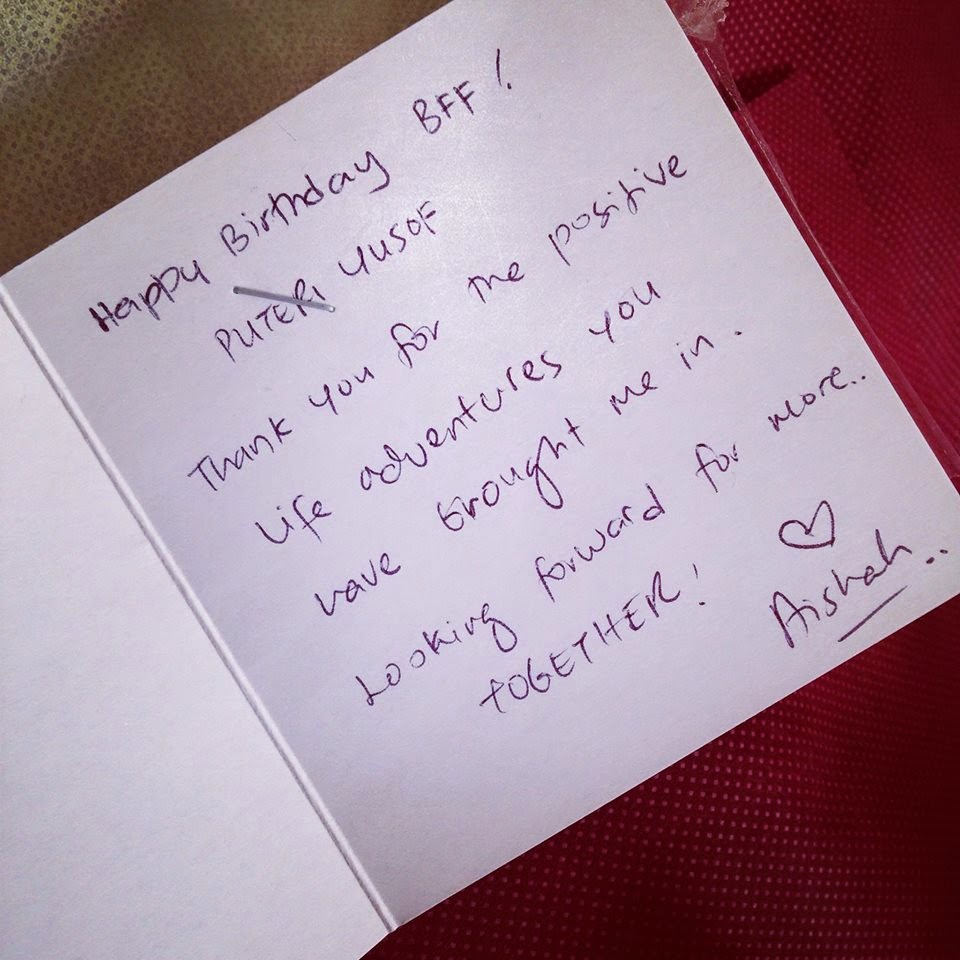 Happy Birthday BFF!
PUTERI YUSOF
Thank you for the positive
life adventures you
have brought me in.
Looking forward for more..
TOGETHER!
♡
Aishah..